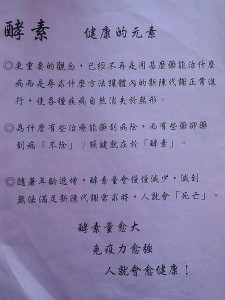 酵素 健康的元素
◎更重要的觀念，已經不再是用甚麼藥能治什麼
病而是尋求什麼方法讓體內的新陳代謝正常進
行，使各種疾病自然消失於無形。
◎為什麼有些治療能藥到病除，而有些藥卻藥
到病「不除」？關鍵就在於「酵素」。
◎隨著年齡遞增，酵素量會慢慢減少，減到
無法滿足新陳代謝需求時，人就會「死亡」。
酵素量愈大
免疫力愈強
人就會愈健康！